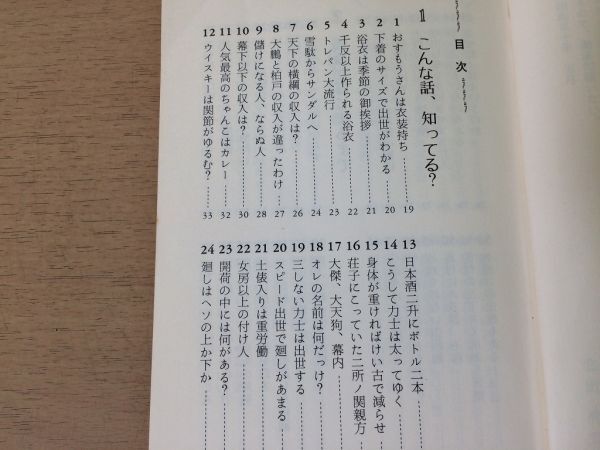 目次
1 こんな話、知ってる？
1 おすもうさんは衣装持ち 19
2 下着のサイズで出世がわかる 20
3 浴衣は季節の御挨拶 21
4 千反以上作られる浴衣 22
5 トレパン大流行 23
6 雪駄からサンダルへ 24
7 天下の横綱の収入は？ 26
8 大鵬と柏戸の収入が違ったわけ 27
9 儲けになる人、ならぬ人 28
10 幕下以下の収入は？ 30
11 人気最高のちゃんこはカレー 32
12 ウイスキーは関節がゆるむ？ 33
13 日本酒二升にボトル二本
14 こうして力士は太ってゆく
15 身体が重ければけい古で減らせ
16 荘子にこっていた二所ノ関親方
17 大傑、大天狗、幕内
18 オレの名前は何だっけ？
19 三しない力士は出世する
20 スピード出世で廻しがあまる
21 土俵入りは重労働
22 女房以上の付け人
23 開荷の中には何がある？
24 廻しはヘソの上か下か